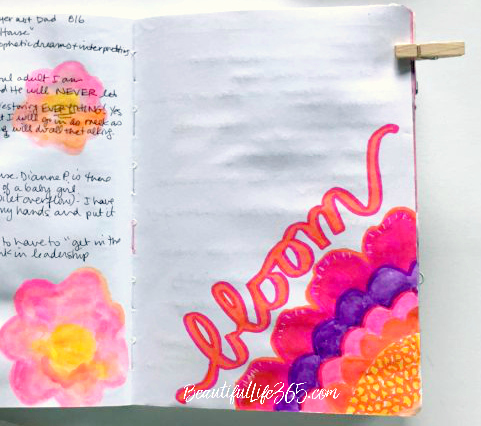 yer not Dad 8/6
House"
ophetic dreams + interpretting
ful adult I am
d He will NEVER let
restoring EVERYTHING! Yes
t I will go in as meek as
g will do all the talking.
use. Dianne P. is there
of a baby girl
oilet overflow) - I have
my hands and put it
to have to "get in the
nk in leadership
bloom
BeautifulLife365.com